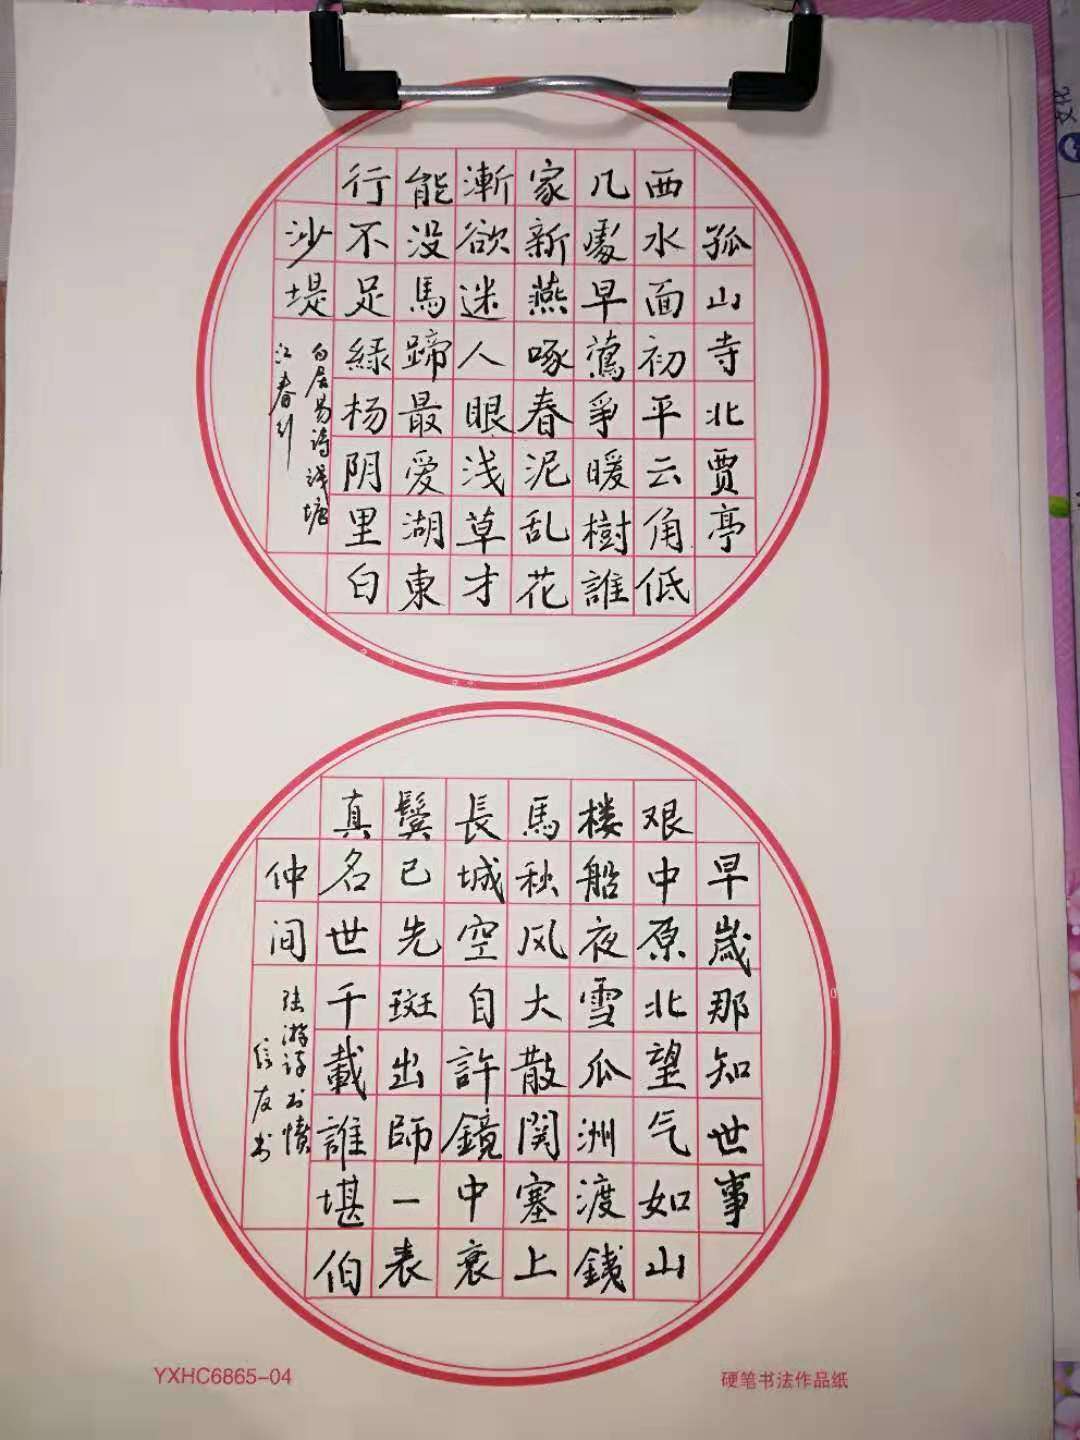 孤山寺北贾亭
西水面初平云角低
几處早鶯爭暖樹誰
家新燕啄春泥乱花
漸欲迷人眼浅草才
能没馬蹄最爱湖東
行不足緑杨阴里白
沙堤
白居易诗钱塘
江春行
早歲那知世事
艰中原北望气如山
楼船夜雪瓜洲渡銭
馬秋风大散関塞上
長城空自許鏡中衰
鬓已先斑出師一表
真名世千載誰堪伯
仲间
陆游诗书愤
信友书
YXHC6865-04
硬笔书法作品纸
文化